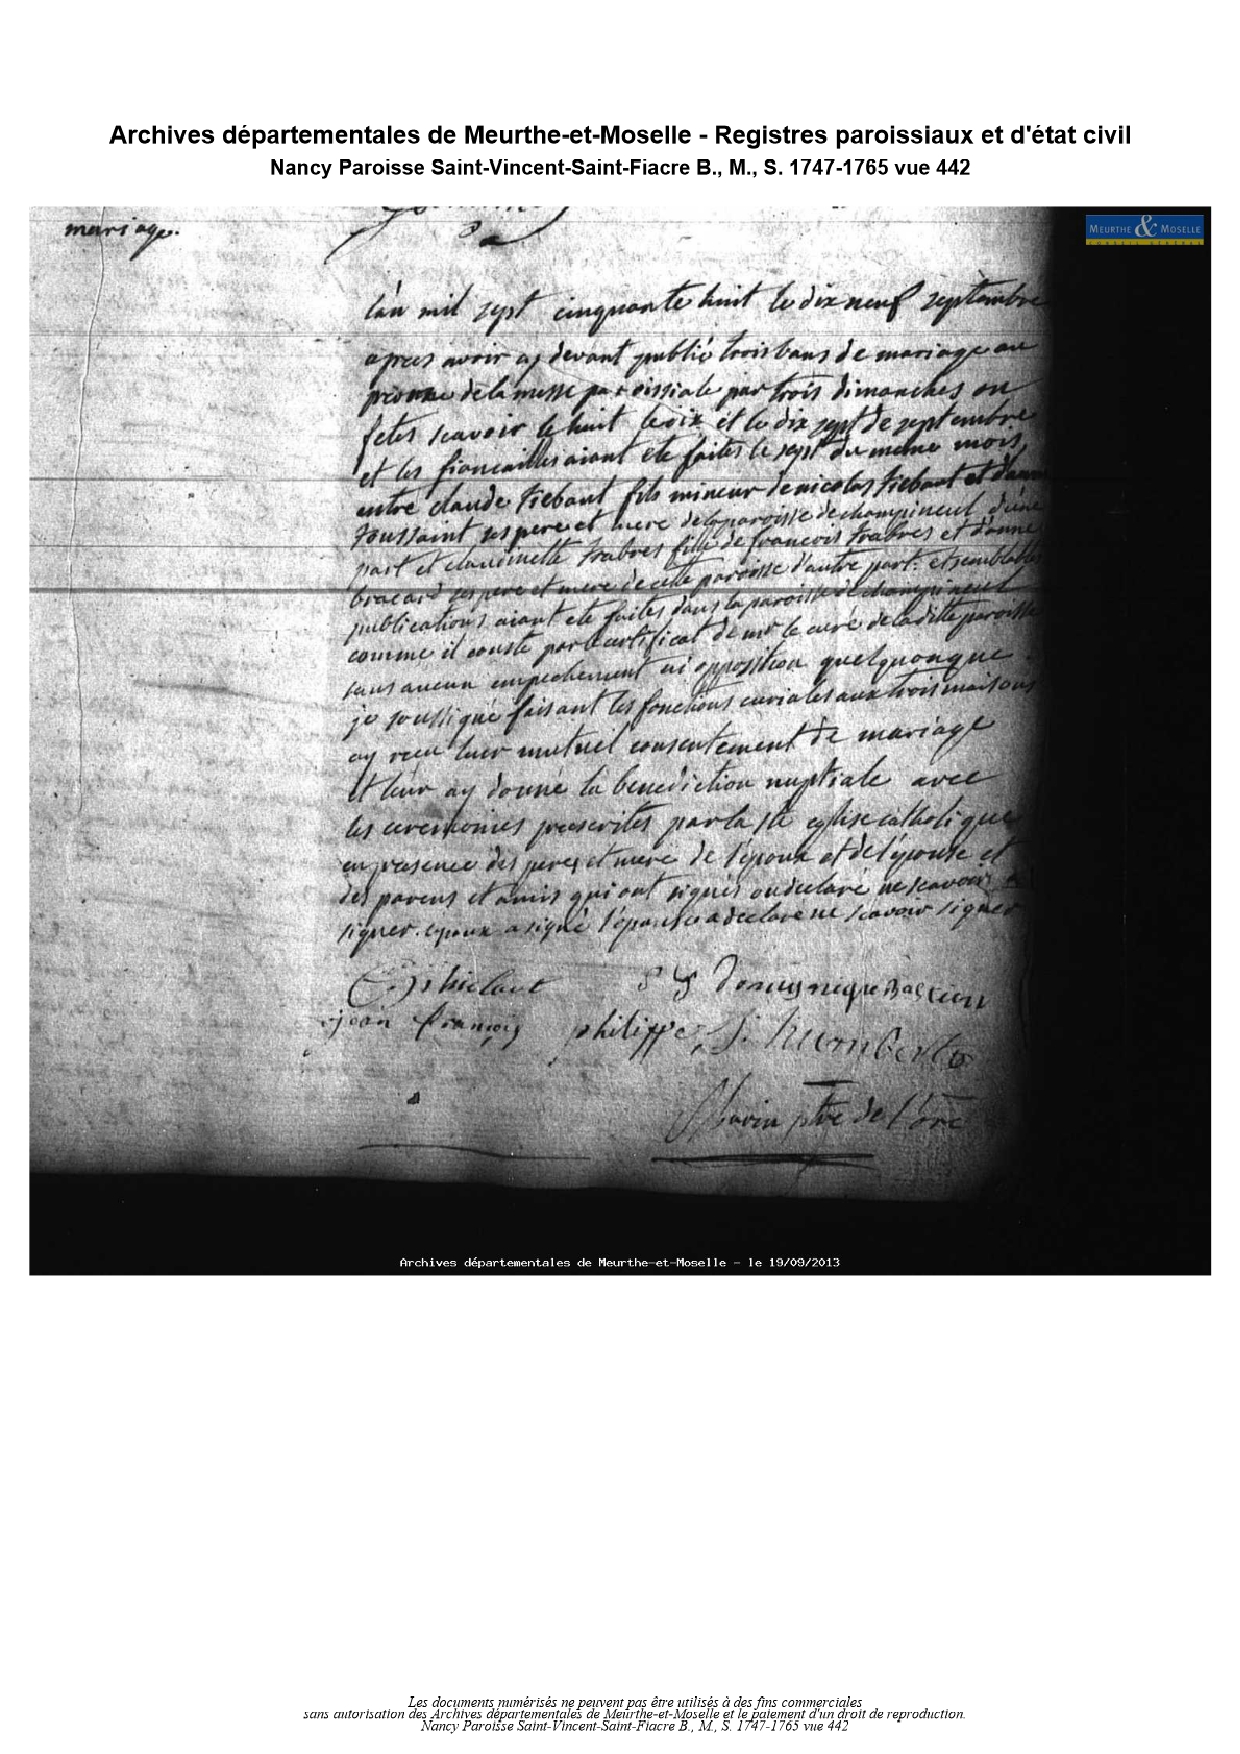 Archives départementales de Meurthe-et-Moselle - Registres paroissiaux et d'état civil
Nancy Paroisse Saint-Vincent-Saint-Fiacre B., M., S. 1747-1765 vue 442
MEURTHE & MOSELLE
mariage.
l'an mil sept cinquante huit le dix neuf septembre
apres avoir cy devant publié trois bans de mariage au
prosne de la messe paroissiale par trois dimanches ou
fetes scavoir le huit le dix et le dix sept de septembre
et les fiancailles aiant ete faites le sept du meme mois,
entre claude tiebaut fils mineur de nicolas tiebaut et d'anne
toussaint ses pere et mere de la paroisse de champineul d'une
part et claudinette trabres fille de francois trabres et d'anne
bracard ses pere et mere de cette paroisse d'autre part. et semblables
publications aiant ete faites dans la paroisse de champineul
comme il conste par le certificat de mr le curé de la ditte paroisse
sans aucun empechement ni opposition quelquonque
je soussigné faisant les fonctions curiales aux trois maisons
ay recu luer mutuel consentement de mariage
et leur ay donné la benediction nuptiale avec
les ceremonies prescrites par la ste eglise catholique
en presence des peres et mere de l'epoux et de l'epouse et
des parens et amis qui ont signés ou declaré ne scavoir
signer. epoux a signé l'epouse a declare ne scavoir signer
C thiebaut domynique Bastien
jean françois philippe J. humberto
ptre de l'orc
Archives départementales de Meurthe-et-Moselle - le 19/09/2013
Les documents numérisés ne peuvent pas être utilisés à des fins commerciales
sans autorisation des Archives départementales de Meurthe-et-Moselle et le paiement d'un droit de reproduction.
Nancy Paroisse Saint-Vincent-Saint-Fiacre B., M., S. 1747-1765 vue 442